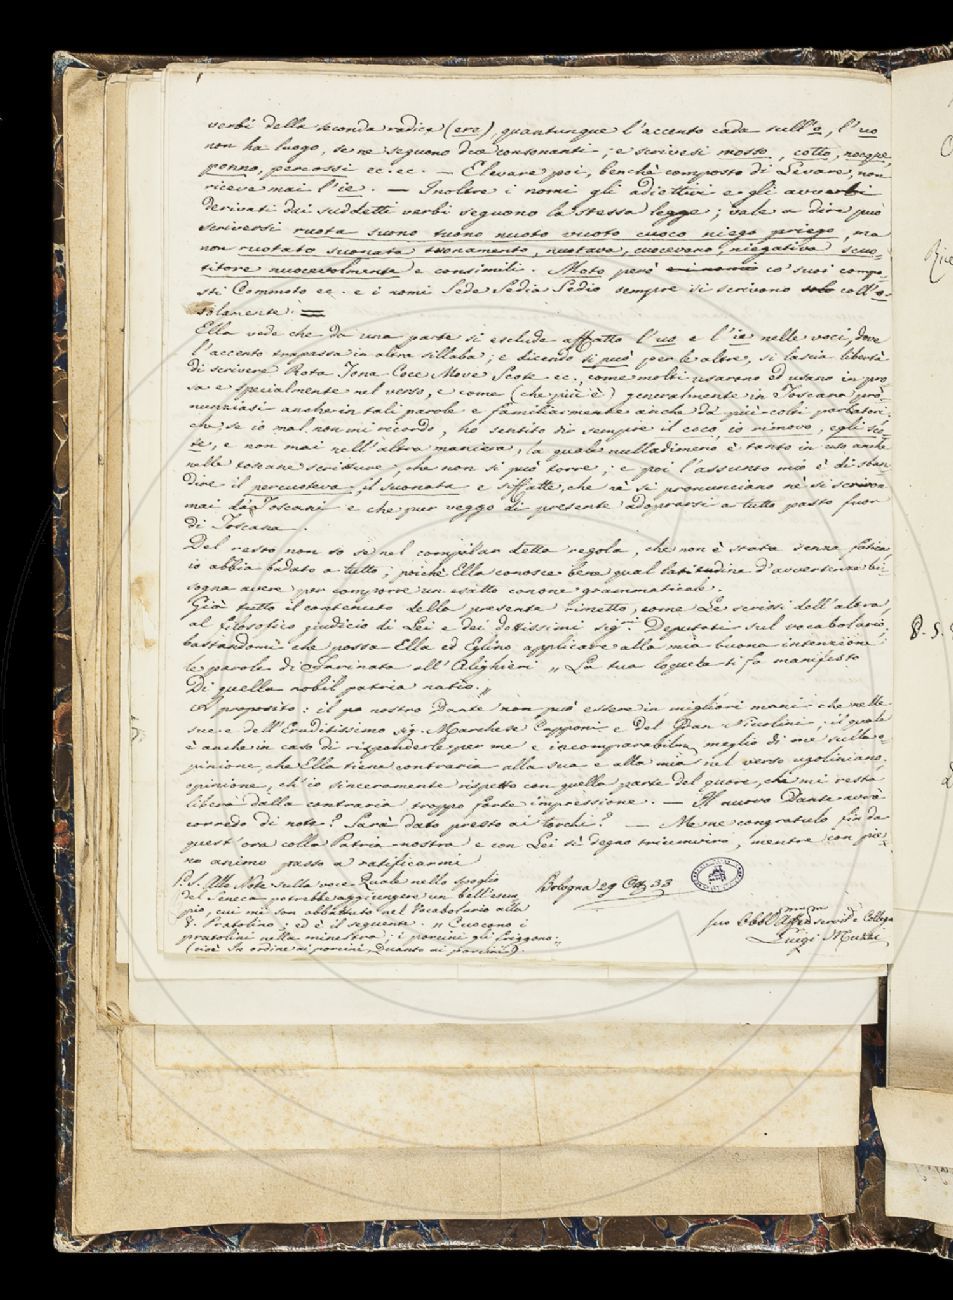 verbi della seconda radice (ere), quantunque l'accento cada sull'o, l'uo
non ha luogo, se ne seguono due consonanti; e scrivesi mosso, cotto, nocque,
ponno, percossi ec. ec. — Elevare poi, benchè composto di Levare, non
riceve mai l'ie. — Inoltre i nomi gli adiettivi e gli avverbi
derivati dai suddetti verbi seguono la stessa legge; vale a dire può
scriversi ruota suono tuono nuoto vuoto cuoco niego priego, ma
non ruotato suonata tuonamento, nuotava, cuocevano, niegativa scuo-
titore nuocevolmente e consimili. Moto però co' suoi compo-
sti Commoto ec. e i nomi Sede Sedia Sedio sempre si scrivono solo coll'o
solamente. =
Ella vede che da una parte si esclude affatto l'uo e l'ie nelle voci, dove
l'accento trapassa in altra sillaba; e dicendo si può per le altre, si lascia libertà
di scrivere Rota Tona Coce Move Scote ec., come molti usarono ed usano in pro-
sa e specialmente nel verso, e come (che più è) generalmente in Toscano pro-
nunziasi anche in tali parole e familiarmente anche da' più colti parlatori,
chè, se io mal non mi ricordo, ho sentito dir sempre il coco, io rimovo, egli sco-
te, e non mai nell'altra maniera, la quale nulladimeno è tanto in uso anche
nelle toscane scritture, che non si può torre; e poi l'assunto mio è di sban-
dire il percuoteva, il suonata e siffatte, che nè si pronunciano nè si scrivon
mai da' Toscani e che pur veggo di presente adoprarsi a tutto pasto fuor
di Toscana.
Del resto non so se nel compilar detta regola, che non è stata senza fatica,
io abbia badato a tutto; poichè Ella conosce bene qual latitudine d'avvertenze bi-
sogna avere per comporre un esatto canone grammaticale.
Già tutto il contenuto della presente rimetto, come Le scrissi dell'altra,
al filosofico giudicio di Lei e dei dottissimi sig.ri Deputati sul vocabolario,
bastandomi che possa Ella ed Eglino applicare alla mia buona intenzione
le parole di Farinata all'Alighieri „ La tua loquela ti fa manifesto
Di quella nobil patria natio. „
A proposito: il po nostro Dante non può essere in migliori mani che nelle
sue e dell'Eruditissimo sig. Marchese Capponi e del Gran Niccolini; il quale
è anche in caso di risponderle per me e incomparabilm. meglio di me sulla o-
pinione, che Ella tiene contraria alla sua e alla mia nel verso ugoliniano:
opinione, ch'io sinceramente rispetto con quella parte del cuore, che mi resta
libera dalla contraria troppo forte impressione. — Il nuovo Dante avrà
corredo di note? Sarà dato presto ai torchi? — Me ne congratulo fin da
quest'ora colla Patria nostra e con Lei sì degno triumviro, mentre con pie-
no animo passo a ratificarmi
P.S. Alla Nota sulla voce Quale nello spoglio
del Seneca potrebbe aggiungere un bell'esem-
pio, cui mi son abbattuto nel Vocabolario alla
V. Pratolino, ed è il seguente. „ Cuocono i
pratolini nella minestra; i porcini gli friggono „
(cioè In ordine ai porcini, Quanto ai porcini).
Bologna 29 33
suo Obbl. Aff.mo servid. e Collega
Luigi Muzzi